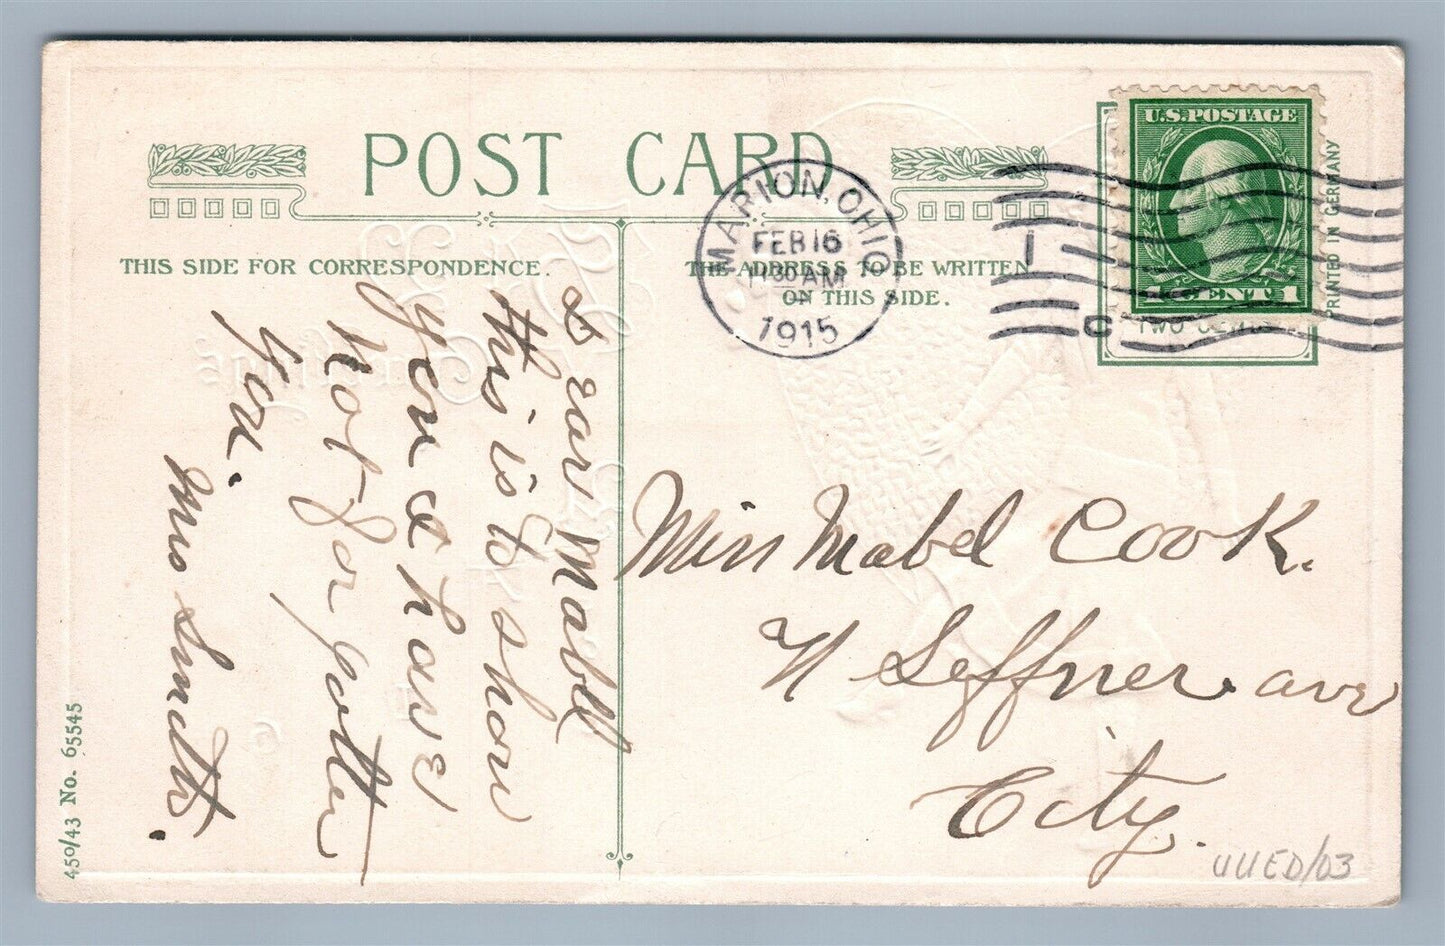 POST CARD
THIS SIDE FOR CORRESPONDENCE.
THE ADDRESS TO BE WRITTEN
ON THIS SIDE.
MARION, OHIO
FEB 16
11 30 AM
1915
1
C
U.S. POSTAGE
1 CENT 1
TWO CENTS
PRINTED IN GERMANY
Dear Mabell
this is to show
you I have
not forgotten
you.
Mrs Smith.
Miss Mabel Cook.
N Seffner ave
City.
450/43 No. 65545